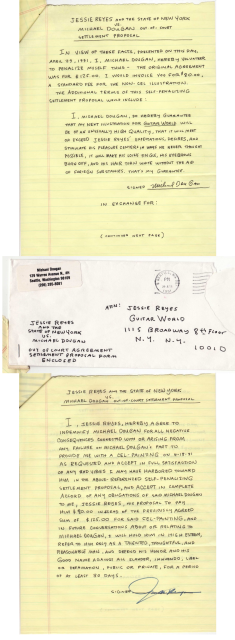 JESSIE REYES AND THE STATE OF NEW YORK
VS.
MICHAEL DOUGAN: OUT-OF-COURT
SETTLEMENT PROPOSAL
IN VIEW OF THESE FACTS, PRESENTED ON THIS DAY,
APRIL 29, 1991, I, MICHAEL DOUGAN, HEREBY VOLUNTEER
TO PENALIZE MYSELF THUS - THE ORIGINAL AGREEMENT
WAS FOR $125.00. I WOULD INVOICE YOU FOR $90.00,
A STANDARD FEE FOR THE NON-CEL ILLUSTRATION.
THE ADDITIONAL TERMS OF THIS SELF-PENALIZING
SETTLEMENT PROPOSAL WOULD INCLUDE:
I, MICHAEL DOUGAN, DO HEREBY GUARANTEE
THAT MY NEXT ILLUSTRATION FOR GUITAR WORLD WILL
BE OF AN UNUSUALLY HIGH QUALITY, THAT IT WILL MEET
OR EXCEED JESSIE REYES' EXPECTATIONS, DESIRES, AND
STIMULATE HIS PLEASURE CENTERS IN WAYS HE NEVER THOUGHT
POSSIBLE, IT WILL MAKE HIS NOSE TINGLE, HIS EYEBROWS
TURN OFF, AND HIS HAIR DRIP WAVE WITHOUT THE AID
OF FOREIGN SUBSTANCES. THAT'S MY GUARANTEE.
SIGNED
IN EXCHANGE FOR:
(CONTINUED NEXT PAGE)
Michael Dougan
Seattle, Washington
JESSIE REYES
AND THE
STATE OF NEW YORK
VS.
MICHAEL DOUGAN
OUT OF COURT AGREEMENT
SETTLEMENT PROPOSAL FORM
ENCLOSED
ATTN: JESSIE REYES
GUITAR WORLD
1115 BROADWAY 8th Floor
N.Y. N.Y.
10010
JESSIE REYES AND THE STATE OF NEW YORK
VS.
MICHAEL DOUGAN: OUT-OF-COURT SETTLEMENT PROPOSAL
I, JESSIE REYES, HEREBY AGREE TO
INDEMNIFY MICHAEL DOUGAN FOR ALL NEGATIVE
CONSEQUENCES CONNECTED WITH OR ARISING FROM
ANY FAILURE ON MICHAEL DOUGAN'S PART TO
PROVIDE ME WITH A CEL-PAINTING ON
AS REQUESTED AND ACCEPT IN FULL SATISFACTION
OF ANY BAD VIBES I MAY HAVE HARBORED TOWARD
HIM IN THE ABOVE-REFERENCED SELF-PENALIZING
SETTLEMENT PROPOSAL, AND ACCEPT IN COMPLETE
ACCORD OF ANY OBLIGATIONS OF SAID MICHAEL DOUGAN
TO ME, JESSIE REYES, HIS PROPOSAL TO PAY
HIM $90.00 INSTEAD OF THE PREVIOUSLY AGREED
SUM OF $125.00 FOR SAID CEL-PAINTING, AND
IN FUTURE CONVERSATIONS ABOUT OR RELATING TO
MICHAEL DOUGAN, I WILL HOLD HIM IN HIGH ESTEEM,
REFER TO HIM ONLY AS A TALENTED, THOUGHTFUL, AND
REASONABLE MAN, AND DEFEND HIS HONOR AND HIS
GOOD NAME AGAINST ALL SLANDER, INNUENDO, LIBEL
OR DEFAMATION, PUBLIC OR PRIVATE, FOR A PERIOD
OF AT LEAST 32 DAYS.
SIGNED